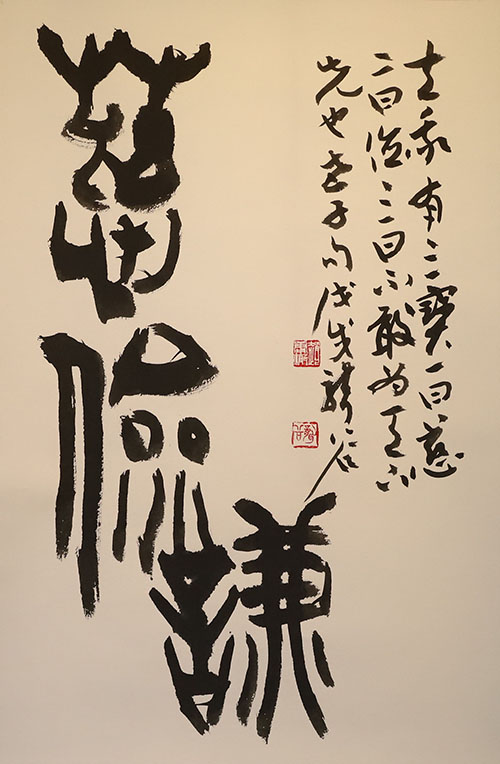 慈儉謙
我有三寶一曰慈
二曰儉三曰不敢為天下
先也老子句戊戌